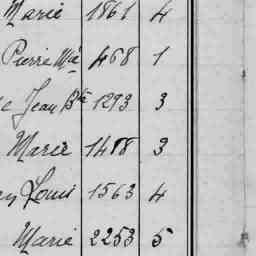 Marie 1861 4
Pierre Ma 468 1
Jean Bte 1293 3
Marie 1488 3
Louis 1563 4
Marie 2253 5